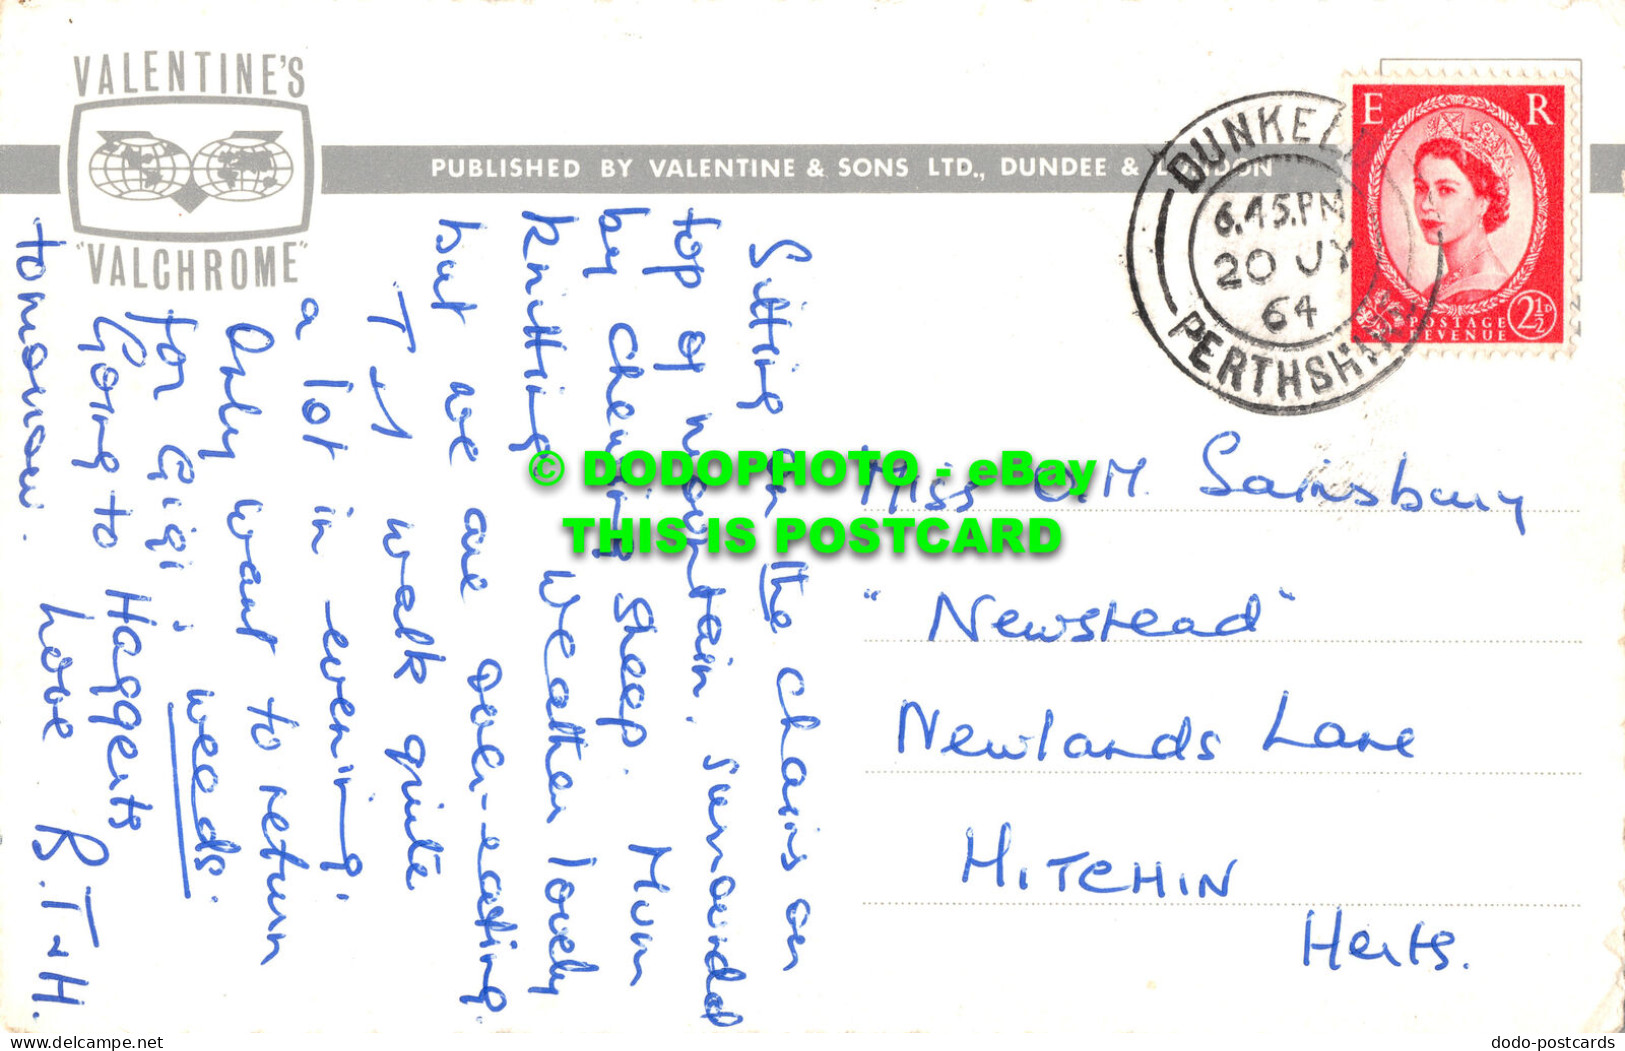 VALENTINE'S
"VALCHROME"
PUBLISHED BY VALENTINE & SONS LTD., DUNDEE & LONDON
DUNKELD
6.45.PM
20 JY
64
PERTHSHIRE
E R
POSTAGE
REVENUE
2½D
Sitting on the chairs on
top of mountain. Surrounded
by chewing sheep. Mum
knitting Weather lovely
but we are over-eating.
T J walk quite
a lot in evening.
Only want to return
for Gigi & weeds.
Going to Haggerts
tomorrow. Love B.T & H.
Miss O.M. Sainsbury
"Newstead"
Newlands Lane
HITCHIN
Herts.
© DODOPHOTO - eBay
THIS IS POSTCARD
www.delcampe.net
dodo-postcards